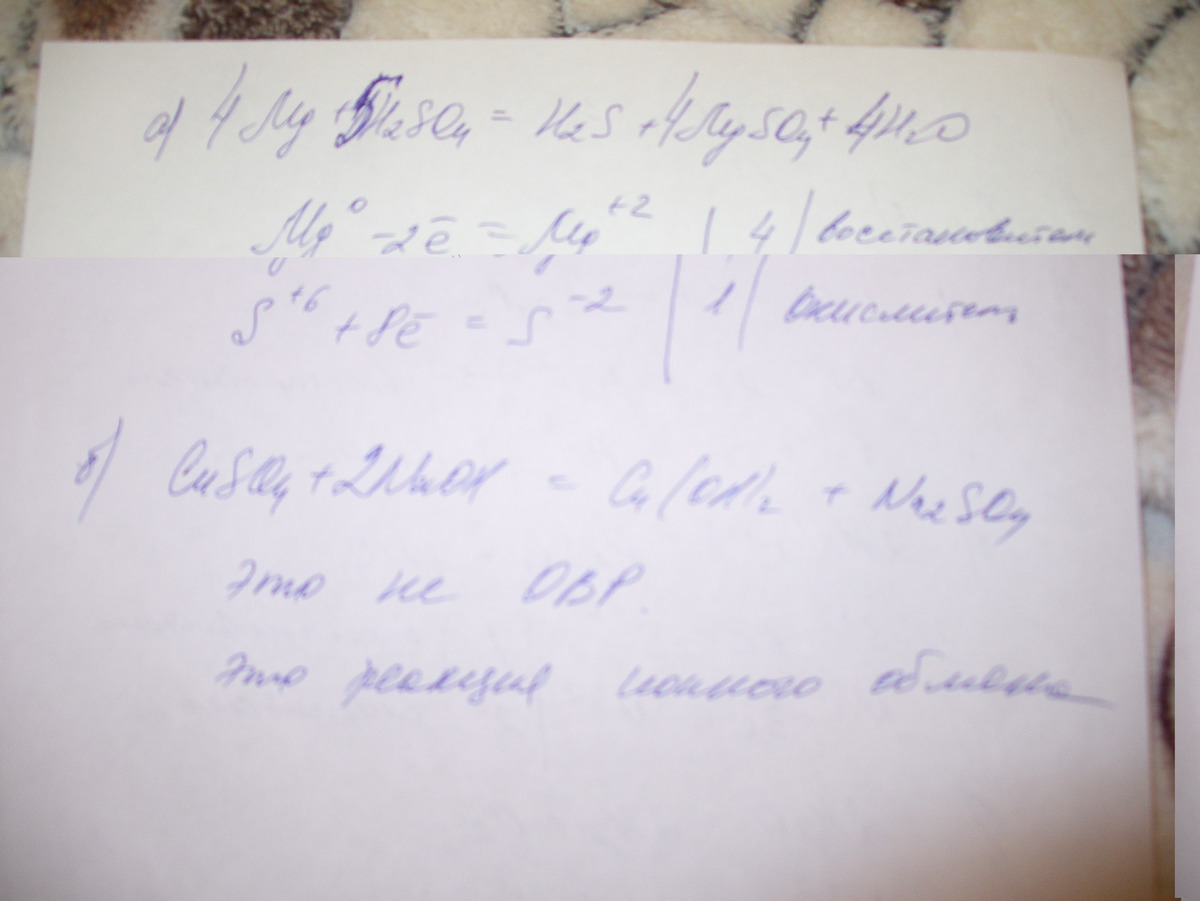 а) 4Mg + 5H₂SO₄ = H₂S + 4MgSO₄ + 4H₂O
Mg⁰ -2ē = Mg⁺² | 4 | восстановитель
S⁺⁶ + 8ē = S⁻² | 1 | окислитель
б) CuSO₄ + 2NaOH = Cu(OH)₂ + Na₂SO₄
Это не ОВР.
Это реакция ионного обмена